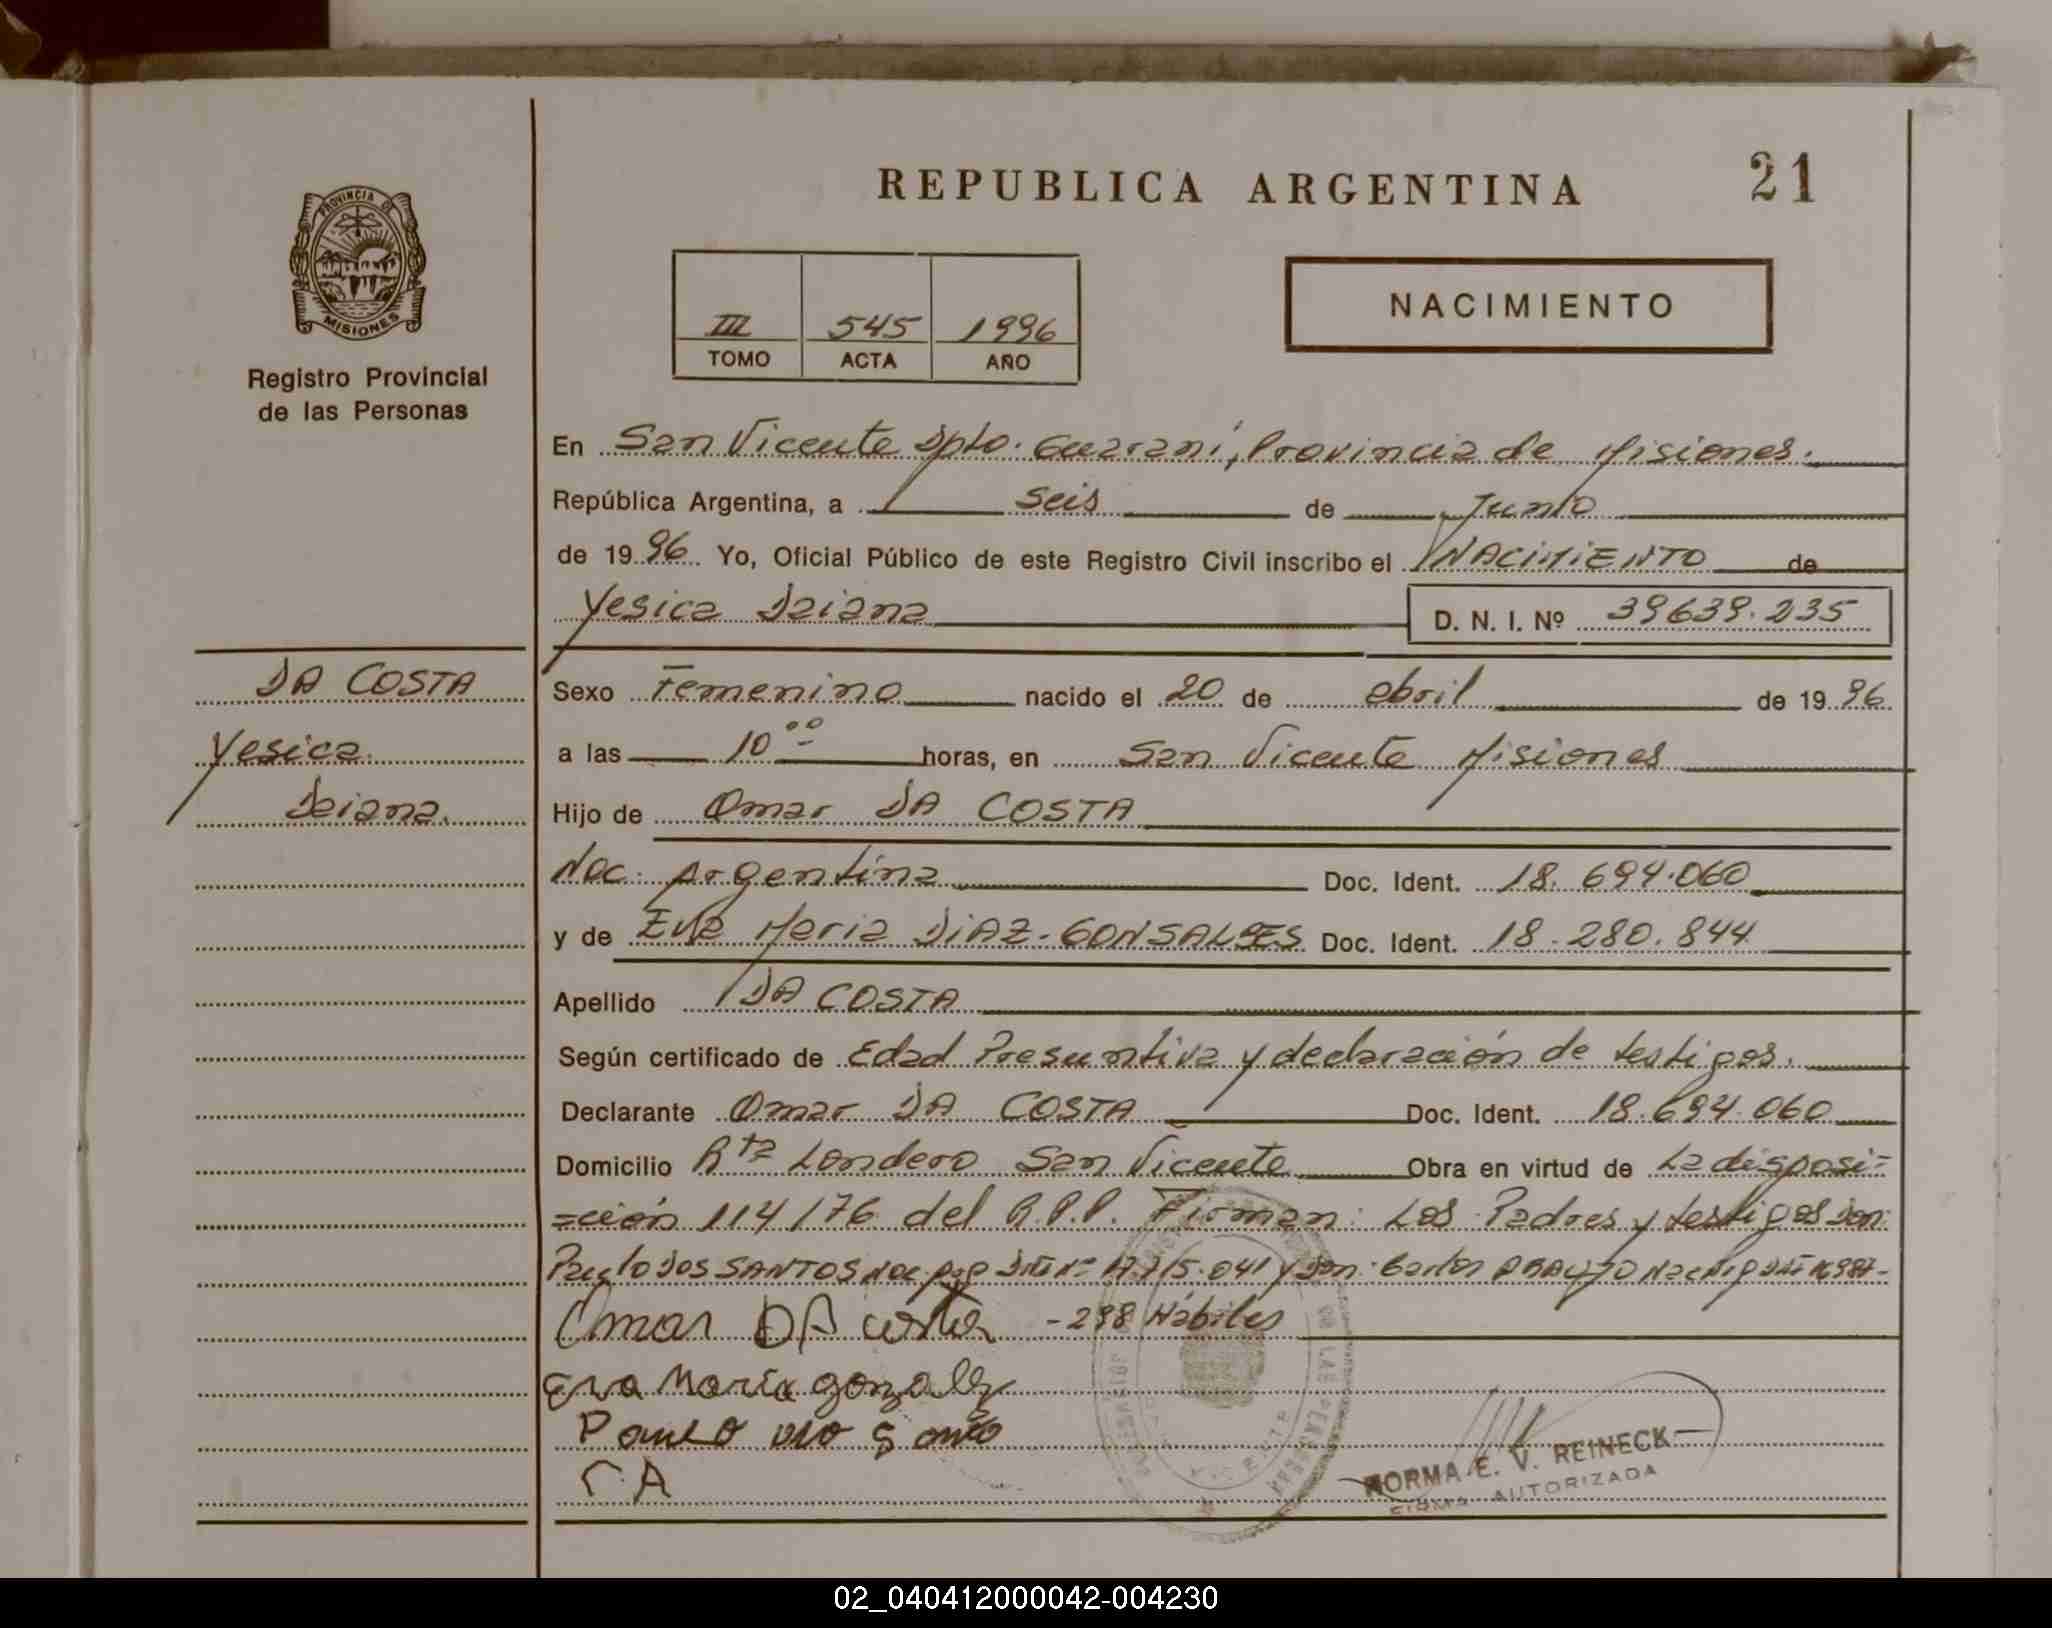 REPUBLICA ARGENTINA
21
PROVINCIA DE
MISIONES
Registro Provincial
de las Personas
III 545 1996
TOMO ACTA AÑO
NACIMIENTO
En San Vicente Dpto. Guaraní, Provincia de Misiones.
República Argentina, a seis de Junio
de 1996. Yo, Oficial Público de este Registro Civil inscribo el NACIMIENTO de
Yesica Daiana D. N. I. Nº 39639.235
DA COSTA
Yesica
Daiana.
Sexo Femenino nacido el 20 de abril de 1996
a las 10 ºº horas, en San Vicente Misiones
Hijo de Omar DA COSTA
Nac. Argentina Doc. Ident. 18.694.060
y de Eva Maria DIAZ-GONSALVES Doc. Ident. 18.280.844
Apellido DA COSTA
Según certificado de Edad Presuntiva y declaración de testigos.
Declarante Omar DA COSTA Doc. Ident. 18.694.060
Domicilio Rta Londero San Vicente Obra en virtud de La disposi=
=ción 114/76 del R.P.P. Firman: Los Padres y testigos Don:
Paulo DOS SANTOS 17.715.041 y Don: Carlos
-298 Hábiles
Omar DA costa
Eva Maria gonzalez
C.A
NORMA E. V. REINECK
FIRMA AUTORIZADA
02_040412000042-004230